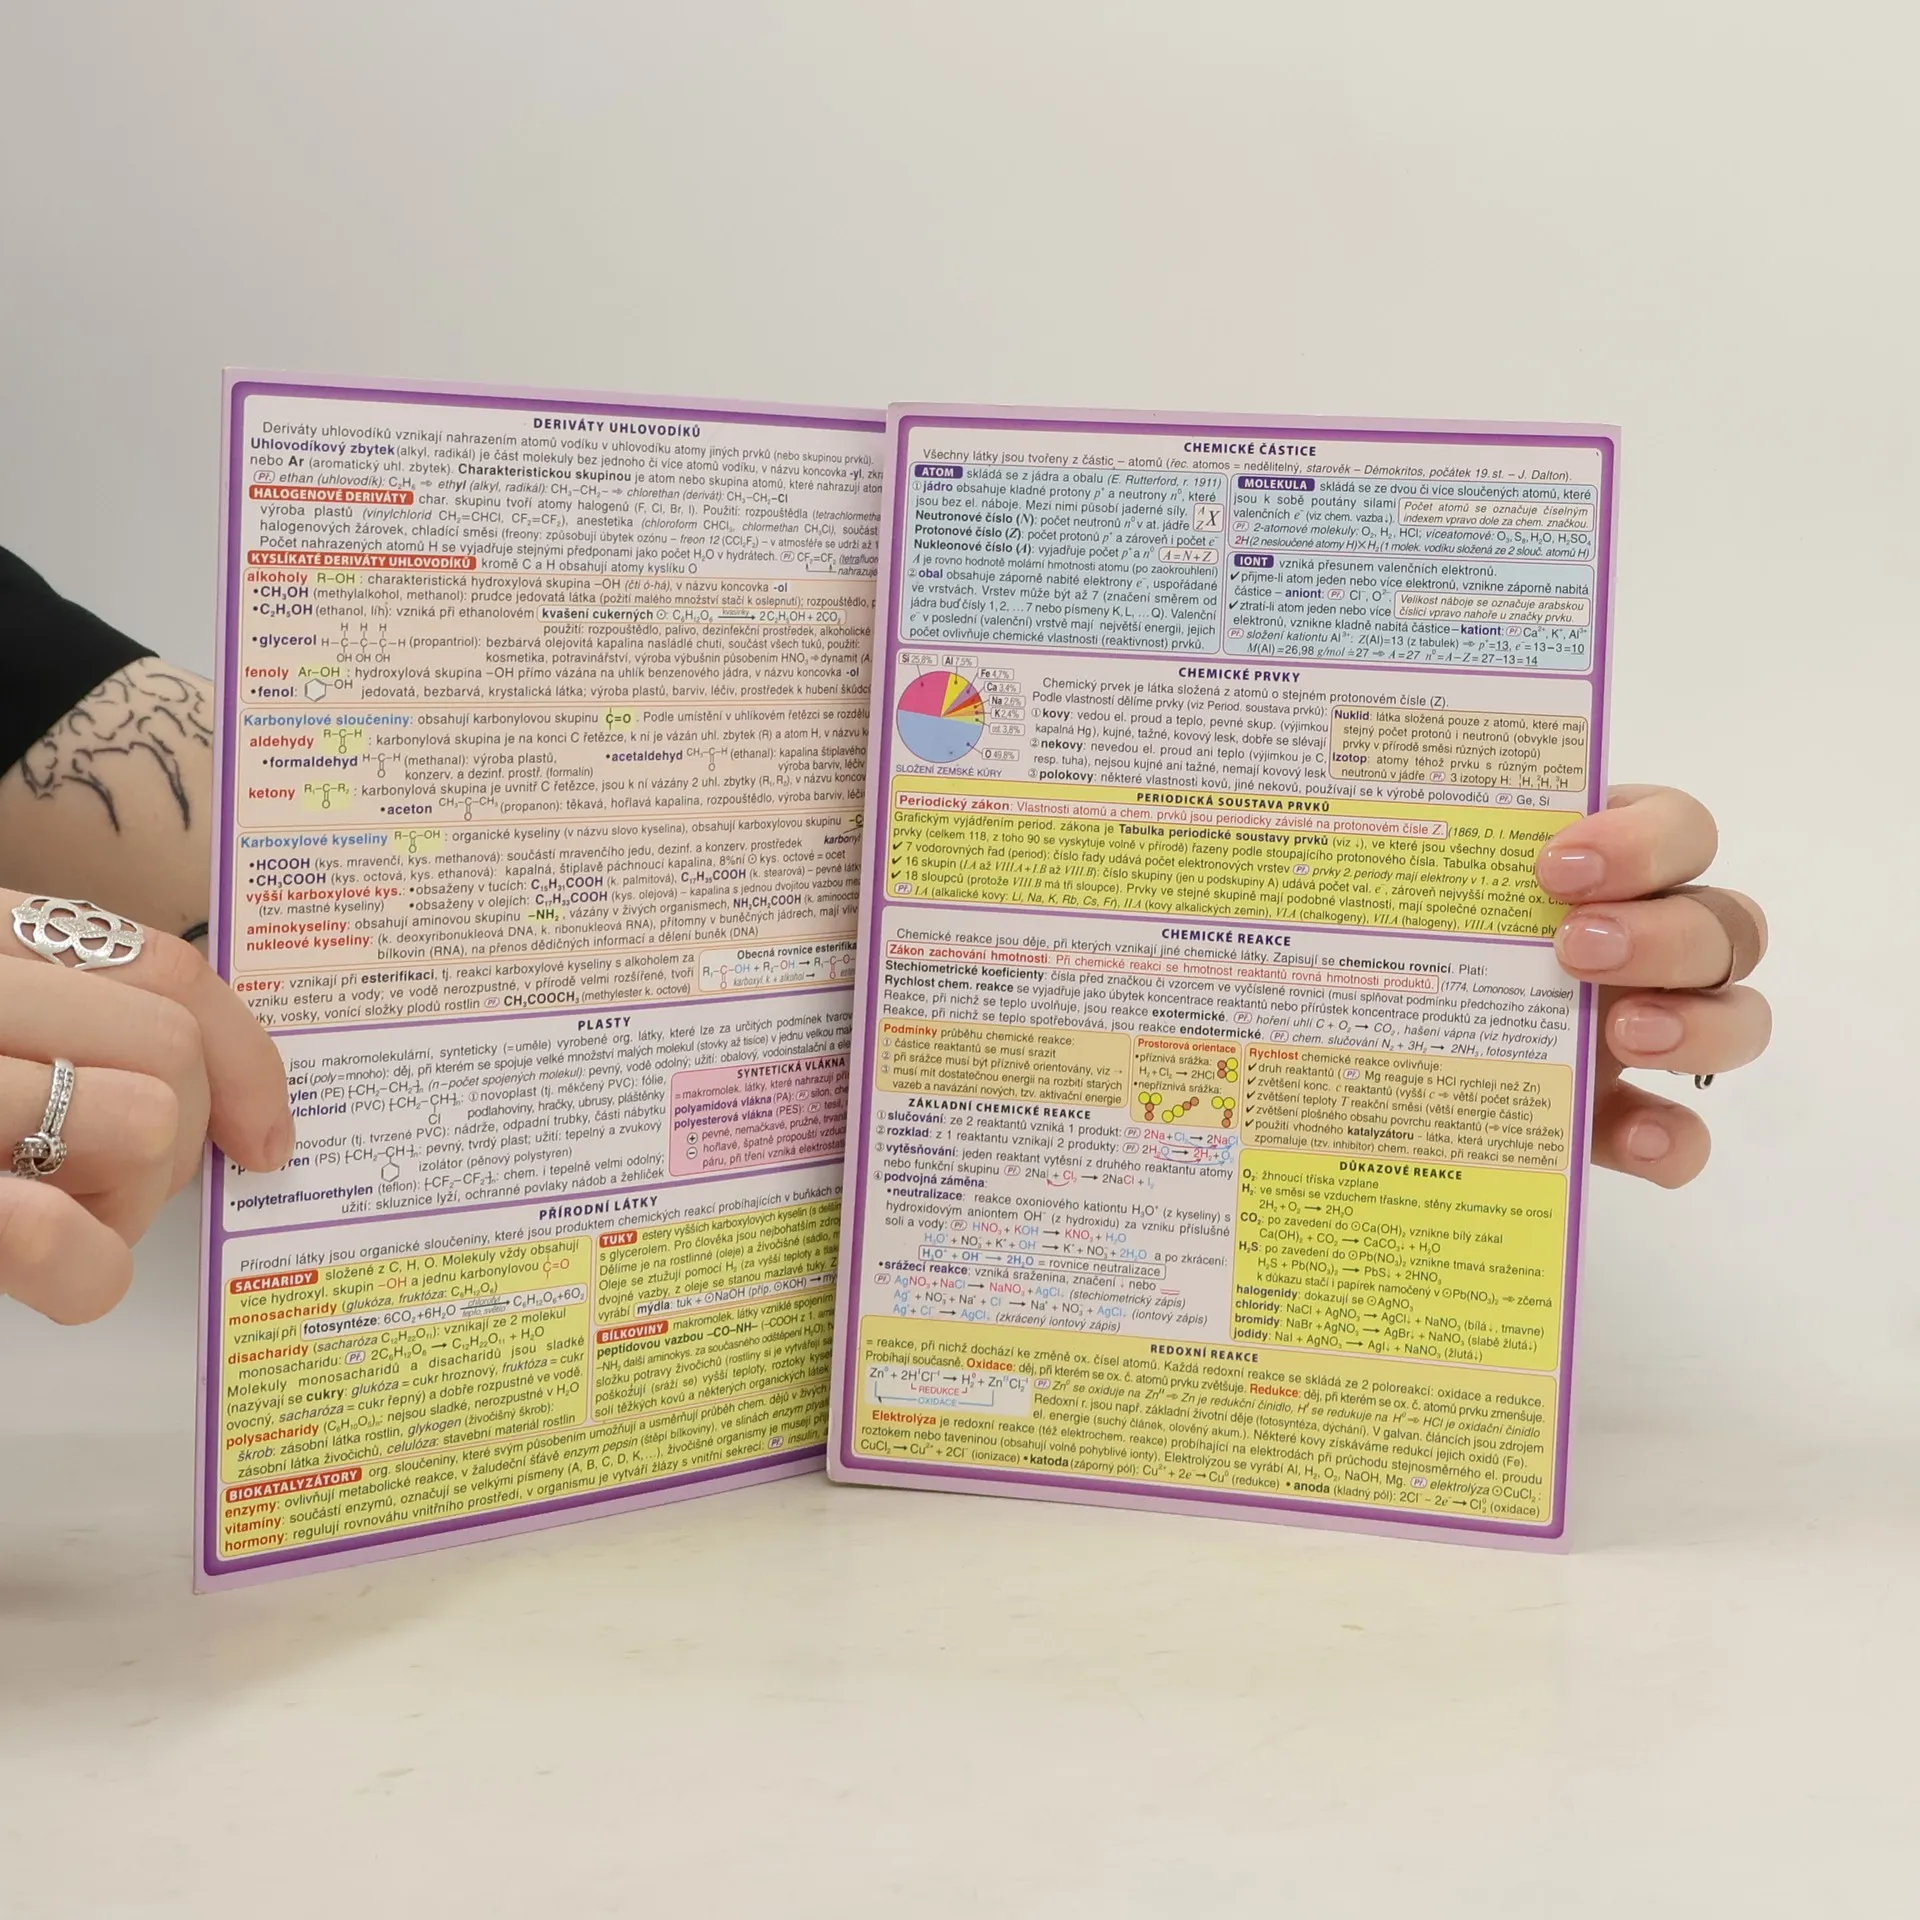 DERIVÁTY UHLOVODÍKŮ
Deriváty uhlovodíků vznikají nahrazením atomů vodíku v uhlovodíku atomy jiných prvků (nebo skupinou prvků).
Uhlovodíkový zbytek (alkyl, radikál) je část molekuly bez jednoho či více atomů vodíku, v názvu koncovka -yl, zkr
nebo Ar (aromatický uhl. zbytek). Charakteristickou skupinou je atom nebo skupina atomů, které nahrazují atom
Př. ethan (uhlovodík): C₂H₆ ⇒ ethyl (alkyl, radikál): CH₃–CH₂– ⇒ chlorethan (derivát): CH₃–CH₂–Cl
HALOGENOVÉ DERIVÁTY char. skupinu tvoří atomy halogenů (F, Cl, Br, I). Použití: rozpouštědla (tetrachlormetha
výroba plastů (vinylchlorid CH₂=CHCl, CF₂=CF₂), anestetika (chloroform CHCl₃, chlormethan CH₃Cl), součást
halogenových žárovek, chladící směsi (freony: způsobují úbytek ozónu – freon 12 (CCl₂F₂) – v atmosféře se udrží až 1
Počet nahrazených atomů H se vyjadřuje stejnými předponami jako počet H₂O v hydrátech. Př. CF₂=CF₂ (tetrafluor
nahrazuje
KYSLÍKATÉ DERIVÁTY UHLOVODÍKŮ kromě C a H obsahují atomy kyslíku O
alkoholy R–OH : charakteristická hydroxylová skupina –OH (čti ó-há), v názvu koncovka -ol
•CH₃OH (methylalkohol, methanol): prudce jedovatá látka (požití malého množství stačí k oslepnutí); rozpouštědlo, p
•C₂H₅OH (ethanol, líh): vzniká při ethanolovém kvašení cukerných ⊙: C₆H₁₂O₆ kvasinky→ 2C₂H₅OH + 2CO₂
použití: rozpouštědlo, palivo, dezinfekční prostředek, alkoholické
H H H
•glycerol H–C–C–C–H (propantriol): bezbarvá olejovitá kapalina nasládlé chuti, součást všech tuků, použití:
OH OH OH kosmetika, potravinářství, výroba výbušnin působením HNO₃ ⇒ dynamit (A.
fenoly Ar–OH : hydroxylová skupina –OH přímo vázána na uhlík benzenového jádra, v názvu koncovka -ol
•fenol: OH jedovatá, bezbarvá, krystalická látka; výroba plastů, barviv, léčiv, prostředek k hubení škůdc
Karbonylové sloučeniny: obsahují karbonylovou skupinu C=O . Podle umístění v uhlíkovém řetězci se rozdělu
aldehydy R–C–H O : karbonylová skupina je na konci C řetězce, k ní je vázán uhl. zbytek (R) a atom H, v názvu k
•formaldehyd H–C–H O (methanal): výroba plastů, •acetaldehyd CH₃–C–H O (ethanal): kapalina štiplavého
konzerv. a dezinf. prostř. (formalín) výroba barviv, léčiv
ketony R₁–C–R₂ O : karbonylová skupina je uvnitř C řetězce, jsou k ní vázány 2 uhl. zbytky (R₁, R₂), v názvu koncov
•aceton CH₃–C–CH₃ O (propanon): těkavá, hořlavá kapalina, rozpouštědlo, výroba barviv, léči
Karboxylové kyseliny R–C–OH O : organické kyseliny (v názvu slovo kyselina), obsahují karboxylovou skupinu –C
•HCOOH (kys. mravenčí, kys. methanová): součástí mravenčího jedu, dezinf. a konzerv. prostředek karbony
•CH₃COOH (kys. octová, kys. ethanová): kapalná, štiplavě páchnoucí kapalina, 8%ní ⊙ kys. octové = ocet
vyšší karboxylové kys.: •obsaženy v tucích: C₁₅H₃₁COOH (k. palmitová), C₁₇H₃₅COOH (k. stearová) – pevné
(tzv. mastné kyseliny) •obsaženy v olejích: C₁₇H₃₃COOH (kys. olejová) – kapalina s jednou dvojitou vazbou me
aminokyseliny: obsahují aminovou skupinu –NH₂, vázány v živých organismech, NH₂CH₂COOH (k. aminoocto
nukleové kyseliny: (k. deoxyribonukleová DNA, k. ribonukleová RNA), přítomny v buněčných jádrech, mají vliv
bílkovin (RNA), na přenos dědičných informací a dělení buněk (DNA)
estery: vznikají při esterifikaci, tj. reakci karboxylové kyseliny s alkoholem za
vzniku esteru a vody; ve vodě nerozpustné, v přírodě velmi rozšířené, tvoří
ky, vosky, vonící složky plodů rostlin Př. CH₃COOCH₃ (methylester k. octové)
Obecná rovnice esterifika
R₁–C–OH + R₂–OH → R₁–C–O–
karboxyl. k. + alkohol → ester
PLASTY
jsou makromolekulární, synteticky (=uměle) vyrobené org. látky, které lze za určitých podmínek tvarov
rací (poly=mnoho): děj, při kterém se spojuje velké množství malých molekul (stovky až tisíce) v jednu velkou mak
ylen (PE) [–CH₂–CH₂–]ₙ (n–počet spojených molekul): pevný, vodě odolný; užití: obalový, vodoinstalační a ele
ylchlorid (PVC) [–CH₂–CH–]ₙ: ①novoplast (tj. měkčený PVC): fólie,
Cl podlahoviny, hračky, ubrusy, pláštěnky
novodur (tj. tvrzené PVC): nádrže, odpadní trubky, části nábytku
ren (PS) [–CH₂–CH–]ₙ: pevný, tvrdý plast; užití: tepelný a zvukový
izolátor (pěnový polystyren)
•polytetrafluorethylen (teflon): [–CF₂–CF₂–]ₙ: chem. i tepelně velmi odolný;
užití: skluznice lyží, ochranné povlaky nádob a žehliček
SYNTETICKÁ VLÁKNA
=makromolek. látky, které nahrazují pří
polyamidová vlákna (PA): Př. silon, che
polyesterová vlákna (PES): Př. tesil,
⊕ pevné, nemačkavé, pružné, trvanl
⊖ hořlavé, špatně propouští vzduc
páru, při tření vzniká elektrostati
PŘÍRODNÍ LÁTKY
Přírodní látky jsou organické sloučeniny, které jsou produktem chemických reakcí probíhajících v buňkách or
SACHARIDY složené z C, H, O. Molekuly vždy obsahují
více hydroxyl. skupin –OH a jednu karbonylovou C=O
monosacharidy (glukóza, fruktóza: C₆H₁₂O₆)
vznikají při fotosyntéze: 6CO₂+6H₂O chlorofyl teplo, světlo→ C₆H₁₂O₆+6O₂
disacharidy (sacharóza C₁₂H₂₂O₁₁): vznikají ze 2 molekul
monosacharidu: Př. 2C₆H₁₂O₆ → C₁₂H₂₂O₁₁ + H₂O
Molekuly monosacharidů a disacharidů jsou sladké
(nazývají se cukry: glukóza = cukr hroznový, fruktóza = cukr
ovocný, sacharóza = cukr řepný) a dobře rozpustné ve vodě.
polysacharidy (C₆H₁₀O₅)ₙ: nejsou sladké, nerozpustné v H₂O
škrob: zásobní látka rostlin, glykogen (živočišný škrob):
zásobní látka živočichů, celulóza: stavební materiál rostlin
TUKY estery vyšších karboxylových kyselin (s delším
s glycerolem. Pro člověka jsou nejbohatším zdroj
Dělíme je na rostlinné (oleje) a živočišné (sádlo, m
Oleje se ztužují pomocí H₂ (za vyšší teploty a tlak
dvojné vazby, z oleje se stanou mazlavé tuky. Z
vyrábí mýdla: tuk + ⊙NaOH (příp. ⊙KOH) → mý
BÍLKOVINY makromolek. látky vzniklé spojením
peptidovou vazbou –CO–NH– (–COOH z 1. ami
–NH₂ další aminokys. za současného odštěpení H₂O): tv
složku potravy živočichů (rostliny si je vytvářejí
poškozují (sráží se) vyšší teploty, roztoky kysel
solí těžkých kovů a některých organických látek
BIOKATALYZÁTORY org. sloučeniny, které svým působením umožňují a usměrňují průběh chem. dějů v živých
enzymy: ovlivňují metabolické reakce, v žaludeční šťávě enzym pepsin (štěpí bílkoviny), ve slinách enzym ptyal
vitamíny: součástí enzymů, označují se velkými písmeny (A, B, C, D, K,...), živočišné organismy je musejí přij
hormony: regulují rovnováhu vnitřního prostředí, v organismu je vytváří žlázy s vnitřní sekrecí; Př. insulin,
CHEMICKÉ ČÁSTICE
Všechny látky jsou tvořeny z částic – atomů (řec. atomos = nedělitelný, starověk – Démokritos, počátek 19. st. – J. Dalton).
ATOM skládá se z jádra a obalu (E. Rutherford, r. 1911)
①jádro obsahuje kladné protony p⁺ a neutrony n⁰, které
jsou bez el. náboje. Mezi nimi působí jaderné síly. A Z X
Neutronové číslo (N): počet neutronů n⁰ v at. jádře
Protonové číslo (Z): počet protonů p⁺ a zároveň i počet e⁻
Nukleonové číslo (A): vyjadřuje počet p⁺ a n⁰ A=N+Z
A je rovno hodnotě molární hmotnosti atomu (po zaokrouhlení)
②obal obsahuje záporně nabité elektrony e⁻, uspořádané
ve vrstvách. Vrstev může být až 7 (značení směrem od
jádra buď čísly 1, 2, ... 7 nebo písmeny K, L, ... Q). Valenční
e⁻ v poslední (valenční) vrstvě mají největší energii, jejich
počet ovlivňuje chemické vlastnosti (reaktivnost) prvku.
MOLEKULA skládá se ze dvou či více sloučených atomů, které
jsou k sobě poutány silami
valenčních e⁻ (viz chem. vazba↓).
Počet atomů se označuje číselným
indexem vpravo dole za chem. značkou.
Př. 2-atomové molekuly: O₂, H₂, HCl; víceatomové: O₃, S₈, H₂O, H₂SO₄
2H(2 nesloučené atomy H)×H₂(1 molek. vodíku složená ze 2 slouč. atomů H)
IONT vzniká přesunem valenčních elektronů.
✓přijme-li atom jeden nebo více elektronů, vznikne záporně nabitá
částice – aniont: Př. Cl⁻, O²⁻
✓ztratí-li atom jeden nebo více
Velikost náboje se označuje arabskou
číslicí vpravo nahoře u značky prvku.
elektronů, vznikne kladně nabitá částice–kationt: Př. Ca²⁺, K⁺, Al³⁺
Př. složení kationtu Al³⁺: Z(Al)=13 (z tabulek) ⇒ p⁺=13, e⁻=13–3=10
M(Al)=26,98 g/mol ≐27 ⇒ A=27 n⁰=A–Z=27–13=14
Si 25,8% Al 7,5%
Fe 4,7%
Ca 3,4%
Na 2,6%
K 2,4%
ost. 3,8%
O 49,8%
SLOŽENÍ ZEMSKÉ KŮRY
CHEMICKÉ PRVKY
Chemický prvek je látka složená z atomů o stejném protonovém čísle (Z).
Podle vlastností dělíme prvky (viz Period. soustava prvků):
①kovy: vedou el. proud a teplo, pevné skup. (výjimkou
kapalná Hg), kujné, tažné, kovový lesk, dobře se slévají
②nekovy: nevedou el. proud ani teplo (výjimkou je C,
resp. tuha), nejsou kujné ani tažné, nemají kovový lesk
③polokovy: některé vlastnosti kovů, jiné nekovů, používají se k výrobě polovodičů Př. Ge, Si
Nuklid: látka složená pouze z atomů, které mají
stejný počet protonů i neutronů (obvykle jsou
prvky v přírodě směsí různých izotopů)
Izotop: atomy téhož prvku s různým počtem
neutronů v jádře Př. 3 izotopy H: ¹₁H, ²₁H, ³₁H
PERIODICKÁ SOUSTAVA PRVKŮ
Periodický zákon: Vlastnosti atomů a chem. prvků jsou periodicky závislé na protonovém čísle Z. (1869, D. I. Menděle
Grafickým vyjádřením period. zákona je Tabulka periodické soustavy prvků (viz ↓), ve které jsou všechny dosud
prvky (celkem 118, z toho 90 se vyskytuje volně v přírodě) řazeny podle stoupajícího protonového čísla. Tabulka obsahuj
✓ 7 vodorovných řad (period): číslo řady udává počet elektronových vrstev Př. prvky 2. periody mají elektrony v 1. a 2. vrstv
✓ 16 skupin (I.A až VIII.A+I.B až VIII.B): číslo skupiny (jen u podskupiny A) udává počet val. e⁻, zároveň nejvyšší možné ox. číslo
✓ 18 sloupců (protože VIII.B má tři sloupce). Prvky ve stejné skupině mají podobné vlastnosti, mají společné označení
Př. I.A (alkalické kovy: Li, Na, K, Rb, Cs, Fr), II.A (kovy alkalických zemin), VI.A (chalkogeny), VII.A (halogeny), VIII.A (vzácné ply
CHEMICKÉ REAKCE
Chemické reakce jsou děje, při kterých vznikají jiné chemické látky. Zapisují se chemickou rovnicí. Platí:
Zákon zachování hmotnosti: Při chemické reakci se hmotnost reaktantů rovná hmotnosti produktů. (1774, Lomonosov, Lavoisier)
Stechiometrické koeficienty: čísla před značkou či vzorcem ve vyčíslené rovnici (musí splňovat podmínku předchozího zákona)
Rychlost chem. reakce se vyjadřuje jako úbytek koncentrace reaktantů nebo přírůstek koncentrace produktů za jednotku času.
Reakce, při nichž se teplo uvolňuje, jsou reakce exotermické. Př. hoření uhlí C + O₂ → CO₂, hašení vápna (viz hydroxidy)
Reakce, při nichž se teplo spotřebovává, jsou reakce endotermické. Př. chem. slučování N₂ + 3H₂ → 2NH₃, fotosyntéza
Podmínky průběhu chemické reakce:
① částice reaktantů se musí srazit
② při srážce musí být příznivě orientovány, viz →
③ musí mít dostatečnou energii na rozbití starých
vazeb a navázání nových, tzv. aktivační energie
Prostorová orientace
•příznivá srážka:
H₂+Cl₂ → 2HCl
•nepříznivá srážka:
Rychlost chemické reakce ovlivňuje:
✓druh reaktantů (Př. Mg reaguje s HCl rychleji než Zn)
✓zvětšení konc. c reaktantů (vyšší c ⇒ větší počet srážek)
✓zvětšení teploty T reakční směsi (větší energie částic)
✓zvětšení plošného obsahu povrchu reaktantů (⇒více srážek)
✓použití vhodného katalyzátoru - látka, která urychluje nebo
zpomaluje (tzv. inhibitor) chem. reakci, při reakci se nemění
ZÁKLADNÍ CHEMICKÉ REAKCE
①slučování: ze 2 reaktantů vzniká 1 produkt: Př. 2Na+Cl₂ → 2NaCl
②rozklad: z 1 reaktantu vznikají 2 produkty: Př. 2H₂O → 2H₂+O₂
③vytěsňování: jeden reaktant vytěsní z druhého reaktantu atomy
nebo funkční skupinu Př. 2NaI + Cl₂ → 2NaCl + I₂
④podvojná záměna:
•neutralizace: reakce oxoniového kationtu H₃O⁺ (z kyseliny) s
hydroxidovým aniontem OH⁻ (z hydroxidu) za vzniku příslušné
soli a vody: Př. HNO₃ + KOH → KNO₃ + H₂O
H₃O⁺ + NO₃⁻ + K⁺ + OH⁻ → K⁺ + NO₃⁻ + 2H₂O a po zkrácení:
H₃O⁺ + OH⁻ → 2H₂O = rovnice neutralizace
•srážecí reakce: vzniká sraženina, značení ↓ nebo
Př. AgNO₃ + NaCl → NaNO₃ + AgCl↓ (stechiometrický zápis)
Ag⁺ + NO₃⁻ + Na⁺ + Cl⁻ → Na⁺ + NO₃⁻ + AgCl↓ (iontový zápis)
Ag⁺ + Cl⁻ → AgCl↓ (zkrácený iontový zápis)
DŮKAZOVÉ REAKCE
O₂: žhnoucí tříska vzplane
H₂: ve směsi se vzduchem třaskne, stěny zkumavky se orosí
2H₂ + O₂ → 2H₂O
CO₂: po zavedení do ⊙Ca(OH)₂ vznikne bílý zákal
Ca(OH)₂ + CO₂ → CaCO₃↓ + H₂O
H₂S: po zavedení do ⊙Pb(NO₃)₂ vznikne tmavá sraženina:
H₂S + Pb(NO₃)₂ → PbS↓ + 2HNO₃
k důkazu stačí i papírek namočený v ⊙Pb(NO₃)₂ ⇒ zčerná
halogenidy: dokazují se ⊙AgNO₃
chloridy: NaCl + AgNO₃ → AgCl↓ + NaNO₃ (bílá↓, tmavne)
bromidy: NaBr + AgNO₃ → AgBr↓ + NaNO₃ (slabě žlutá↓)
jodidy: NaI + AgNO₃ → AgI↓ + NaNO₃ (žlutá↓)
REDOXNÍ REAKCE
= reakce, při nichž dochází ke změně ox. čísel atomů. Každá redoxní reakce se skládá ze 2 poloreakcí: oxidace a redukce.
Probíhají současně. Oxidace: děj, při kterém se ox. č. atomů prvku zvětšuje. Redukce: děj, při kterém se ox. č. atomů prvku zmenšuje.
Zn⁰ + 2HᴵCl⁻ᴵ → H₂⁰ + ZnᴵᴵCl₂⁻ᴵ
REDUKCE
OXIDACE
Př. Zn⁰ se oxiduje na Znᴵᴵ ⇒ Zn je redukční činidlo, Hᴵ se redukuje na H⁰ ⇒ HCl je oxidační činidlo
Redoxní r. jsou např. základní životní děje (fotosyntéza, dýchání). V galvan. článcích jsou zdrojem
el. energie (suchý článek, olověný akum.). Některé kovy získáváme redukcí jejich oxidů (Fe).
Elektrolýza je redoxní reakce (též elektrochem. reakce) probíhající na elektrodách při průchodu stejnosměrného el. proudu
roztokem nebo taveninou (obsahují volně pohyblivé ionty). Elektrolýzou se vyrábí Al, H₂, O₂, NaOH, Mg. Př. elektrolýza ⊙CuCl₂:
CuCl₂ → Cu²⁺ + 2Cl⁻ (ionizace) •katoda (záporný pól): Cu²⁺ + 2e⁻ → Cu⁰ (redukce) •anoda (kladný pól): 2Cl⁻ – 2e⁻ → Cl₂⁰ (oxidace)